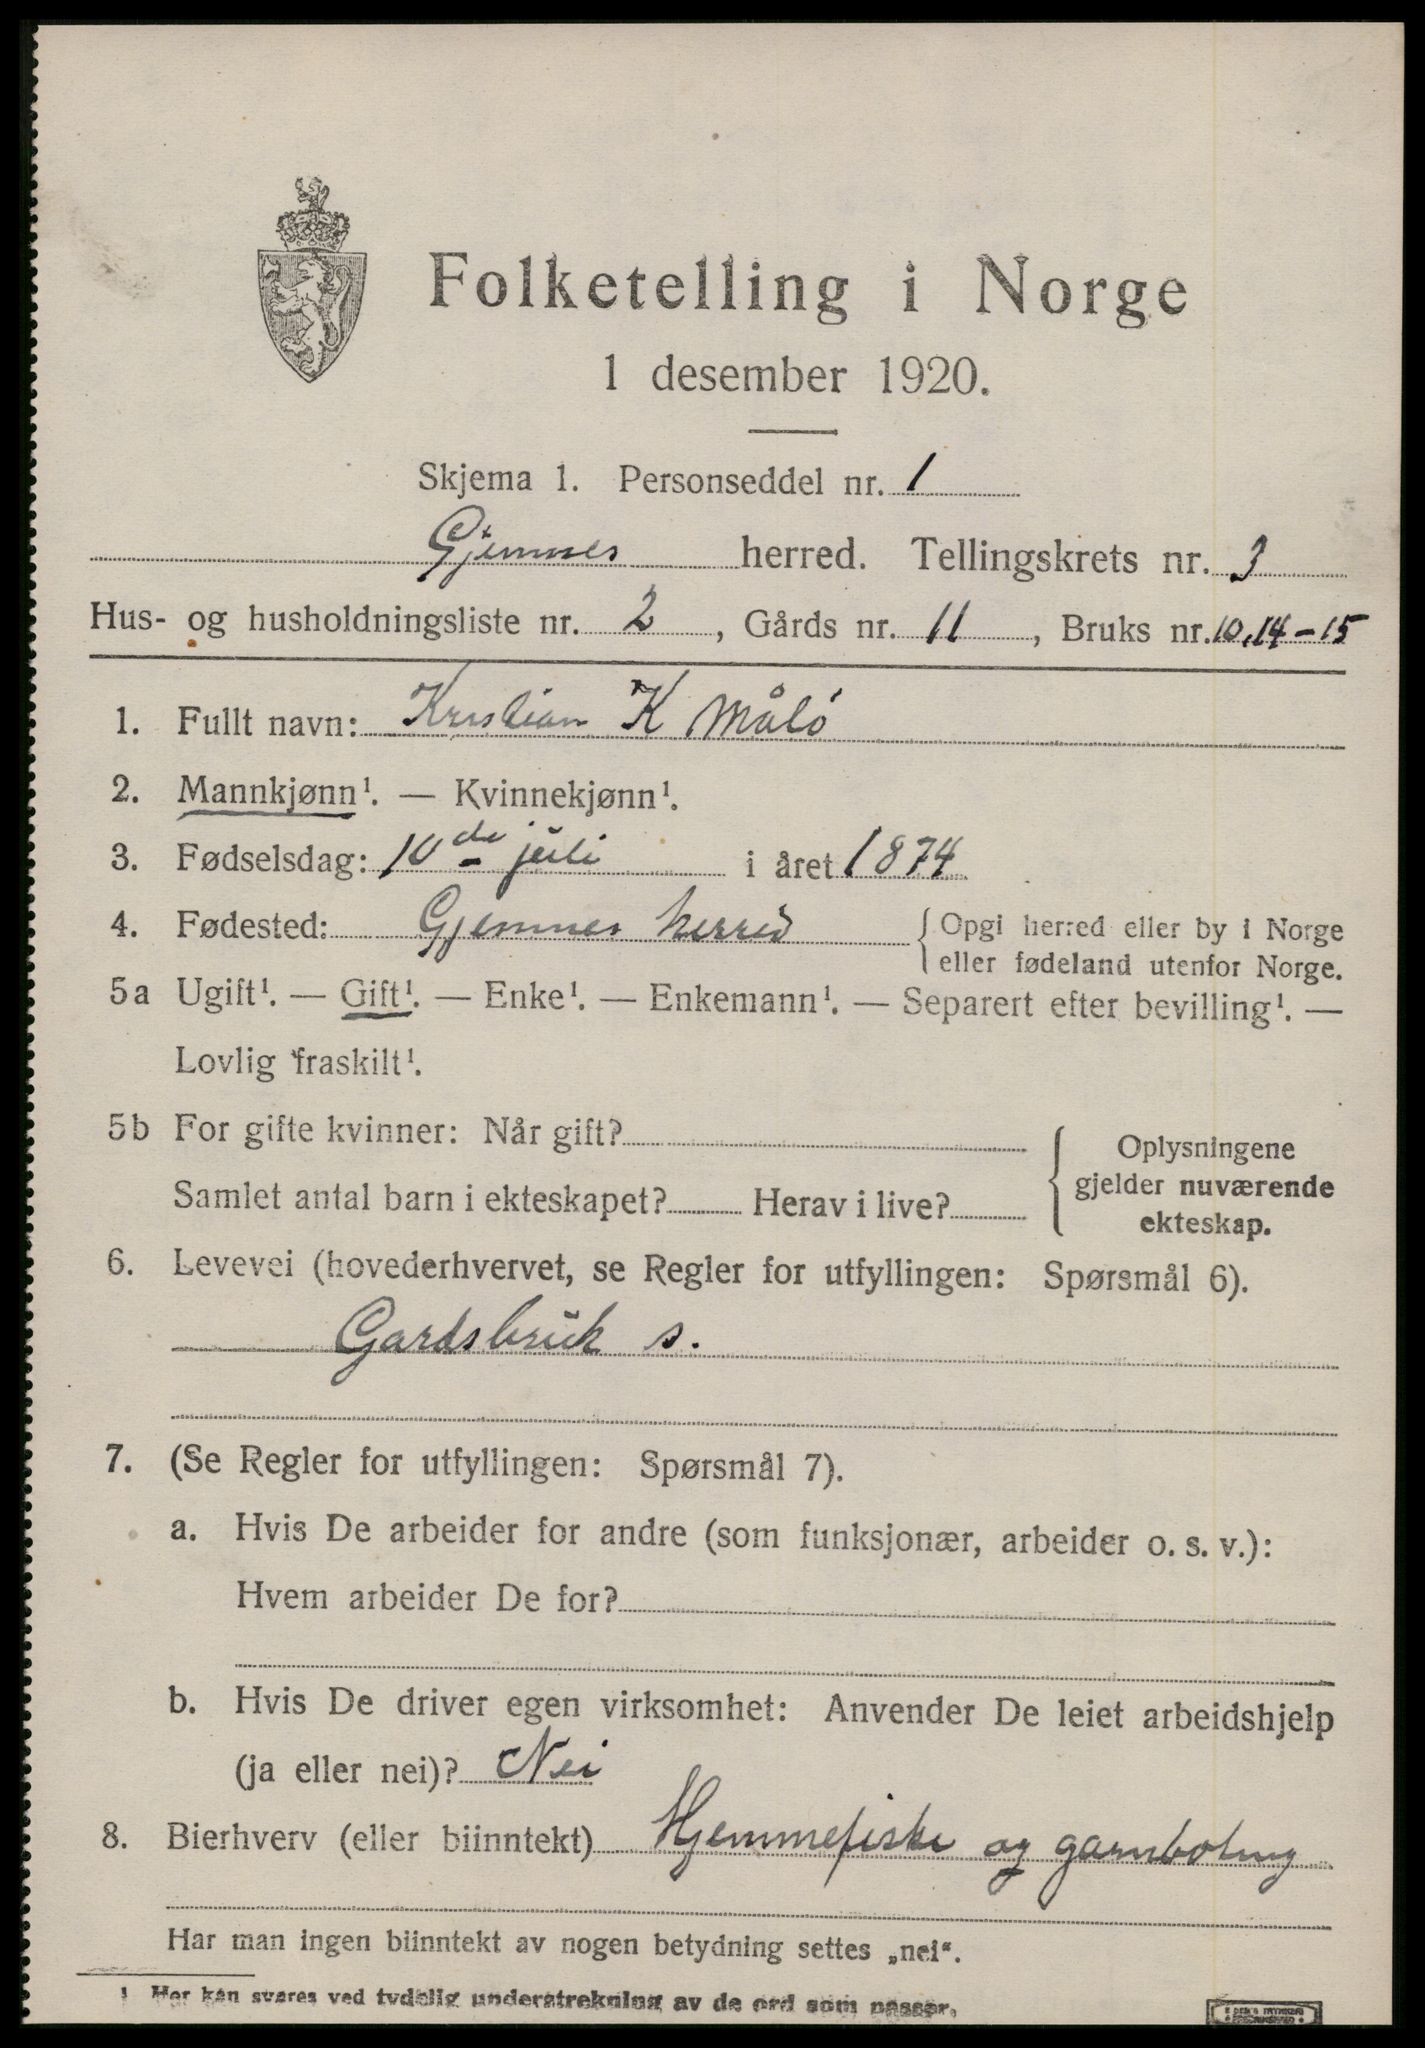 Folketelling i Norge
1 desember 1920.
Skjema 1. Personseddel nr. 1
Gjemnes herred. Tellingskrets nr. 3
Hus- og husholdningsliste nr. 2, Gårds nr. 11, Bruks nr. 10, 14-15
1. Fullt navn: Kristian K Måló
2. Mannkjønn¹. — Kvinnekjønn¹.
3. Fødselsdag: 10de juli i året 1874
4. Fødested: Gjemnes herred { Opgi herred eller by i Norge
eller fødeland utenfor Norge.
5a Ugift¹. — Gift¹. — Enke¹. — Enkemann¹. — Separert efter bevilling¹. —
Lovlig fraskilt¹.
5b For gifte kvinner: Når gift?
Samlet antal barn i ekteskapet? Herav i live?
Oplysningene
gjelder nuværende
ekteskap.
6. Levevei (hovederhvervet, se Regler for utfyllingen: Spørsmål 6).
Gardsbruk s.
7. (Se Regler for utfyllingen: Spørsmål 7).
a. Hvis De arbeider for andre (som funksjonær, arbeider o. s. v.):
Hvem arbeider De for?
b. Hvis De driver egen virksomhet: Anvender De leiet arbeidshjelp
(ja eller nei)? Nei
8. Bierhverv (eller biinntekt) Hjemmefiske og garnboting
Har man ingen biinntekt av nogen betydning settes „nei“.
1 Her kan svares ved tydelig understrekning av de ord som passer.